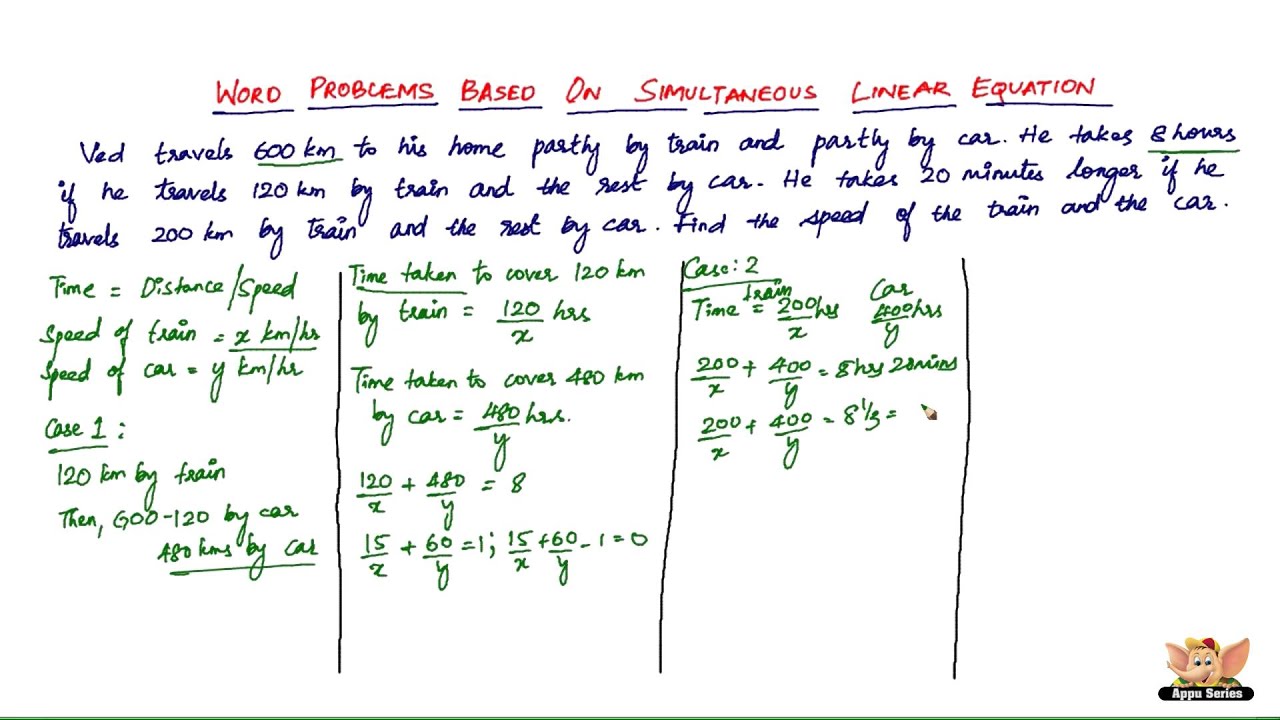 WORD PROBLEMS BASED ON SIMULTANEOUS LINEAR EQUATION
Ved travels 600 km to his home partly by train and partly by car. He takes 8 hours
if he travels 120 km by train and the rest by car. He takes 20 minutes longer if he
travels 200 km by train and the rest by car. Find the speed of the train and the car.
Time = Distance/Speed
Speed of train = x km/hr
Speed of car = y km/hr
Case 1:
120 km by train
Then, 600-120 by car
480 kms by car
Time taken to cover 120 km
by train = 120/x hrs
Time taken to cover 480 km
by car = 480/y hrs.
120/x + 480/y = 8
15/x + 60/y = 1; 15/x + 60/y - 1 = 0
Case: 2
train Car
Time = 200/x hrs 400/y hrs
200/x + 400/y = 8 hrs 20 mins
200/x + 400/y = 8 1/3 =
Appu Series